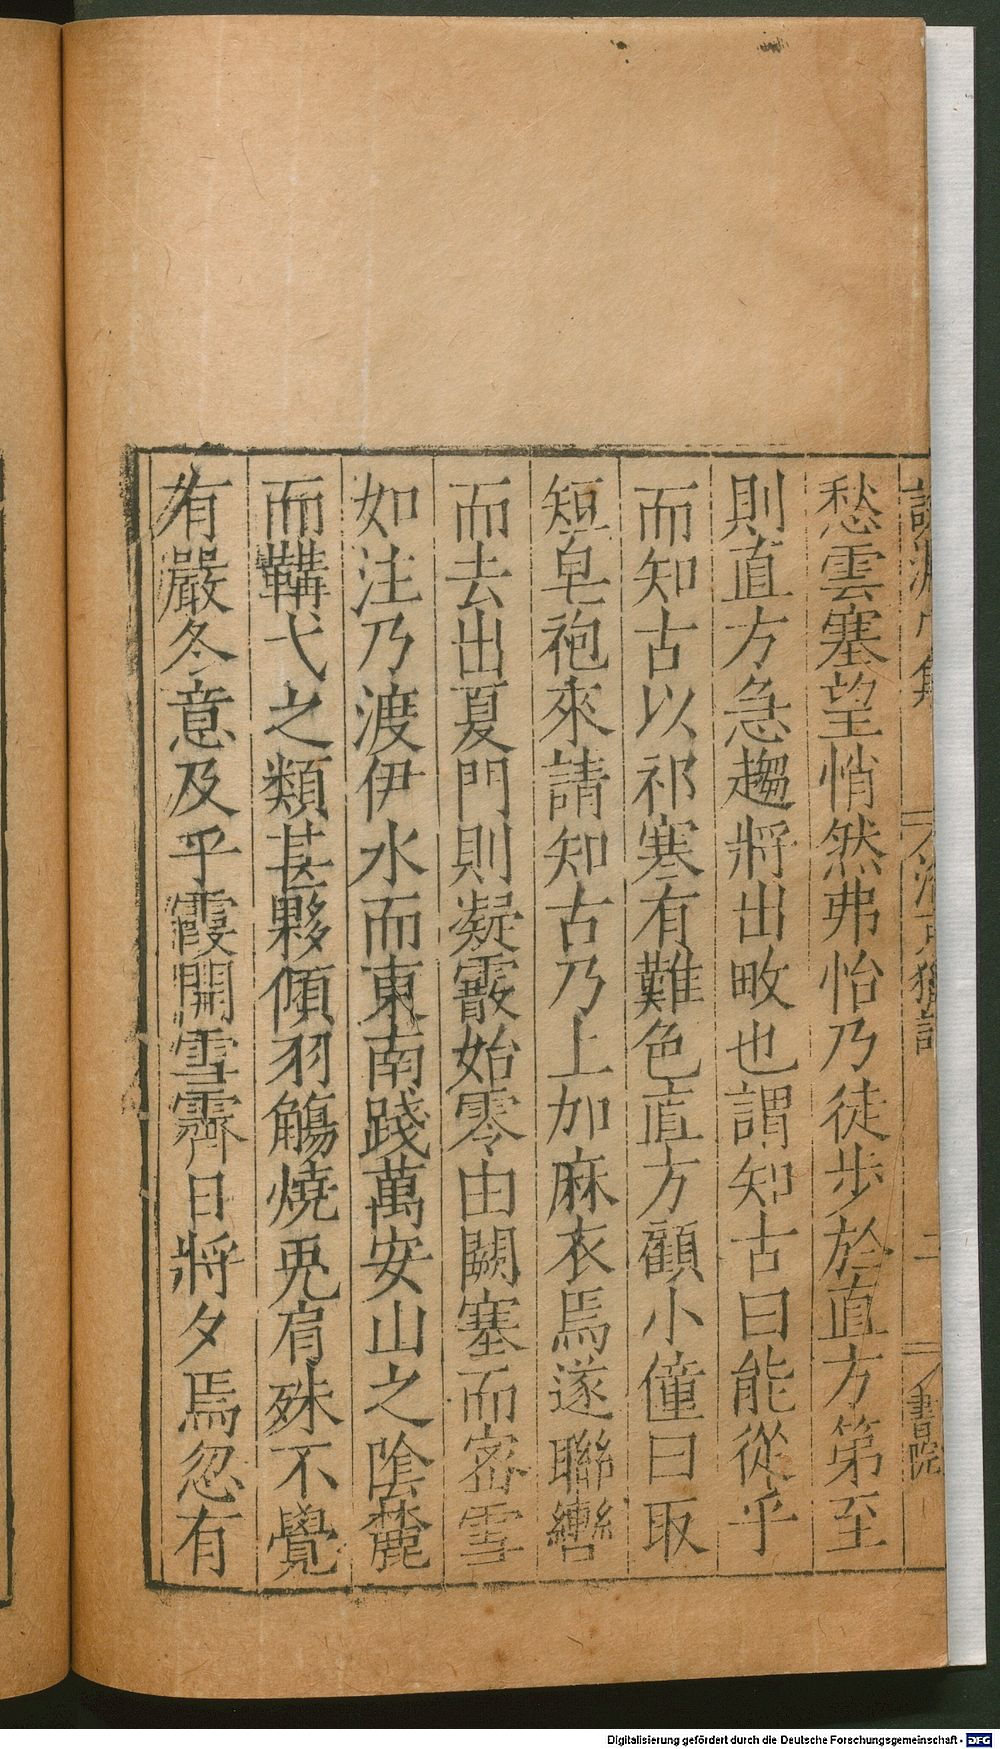 愁雲塞望悄然弗怡乃徒步於直方第至
則直方急趨將出畋也謂知古曰能從乎
而知古以祁寒有難色直方顧小僮曰取
短皂袍來請知古乃上加麻衣焉遂聯轡
而去出夏門則凝霰始零由闕塞而密雪
如注乃渡伊水而東南踐萬安山之陰麓
而鞲弋之類甚夥傾羽觴燒兎肩殊不覺
有嚴冬意及乎霞開雪霽日將夕焉忽有
二
書院
Digitalisierung gefördert durch die Deutsche Forschungsgemeinschaft - DFG